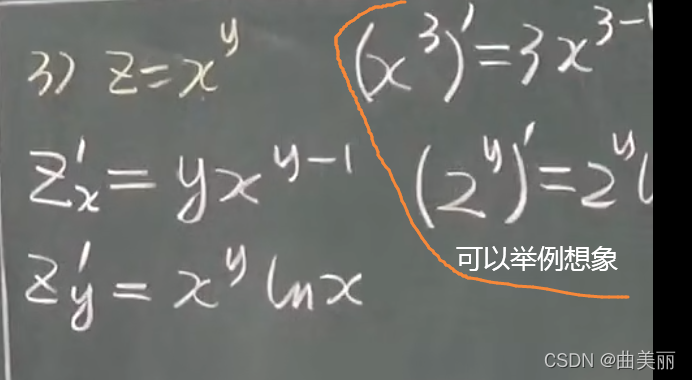 3) z=x^y
z'_x=yx^{y-1}
z'_y=x^y lnx
(x^3)'=3x^{3-1
(2^y)'=2^y
可以举例想象
CSDN @曲美丽